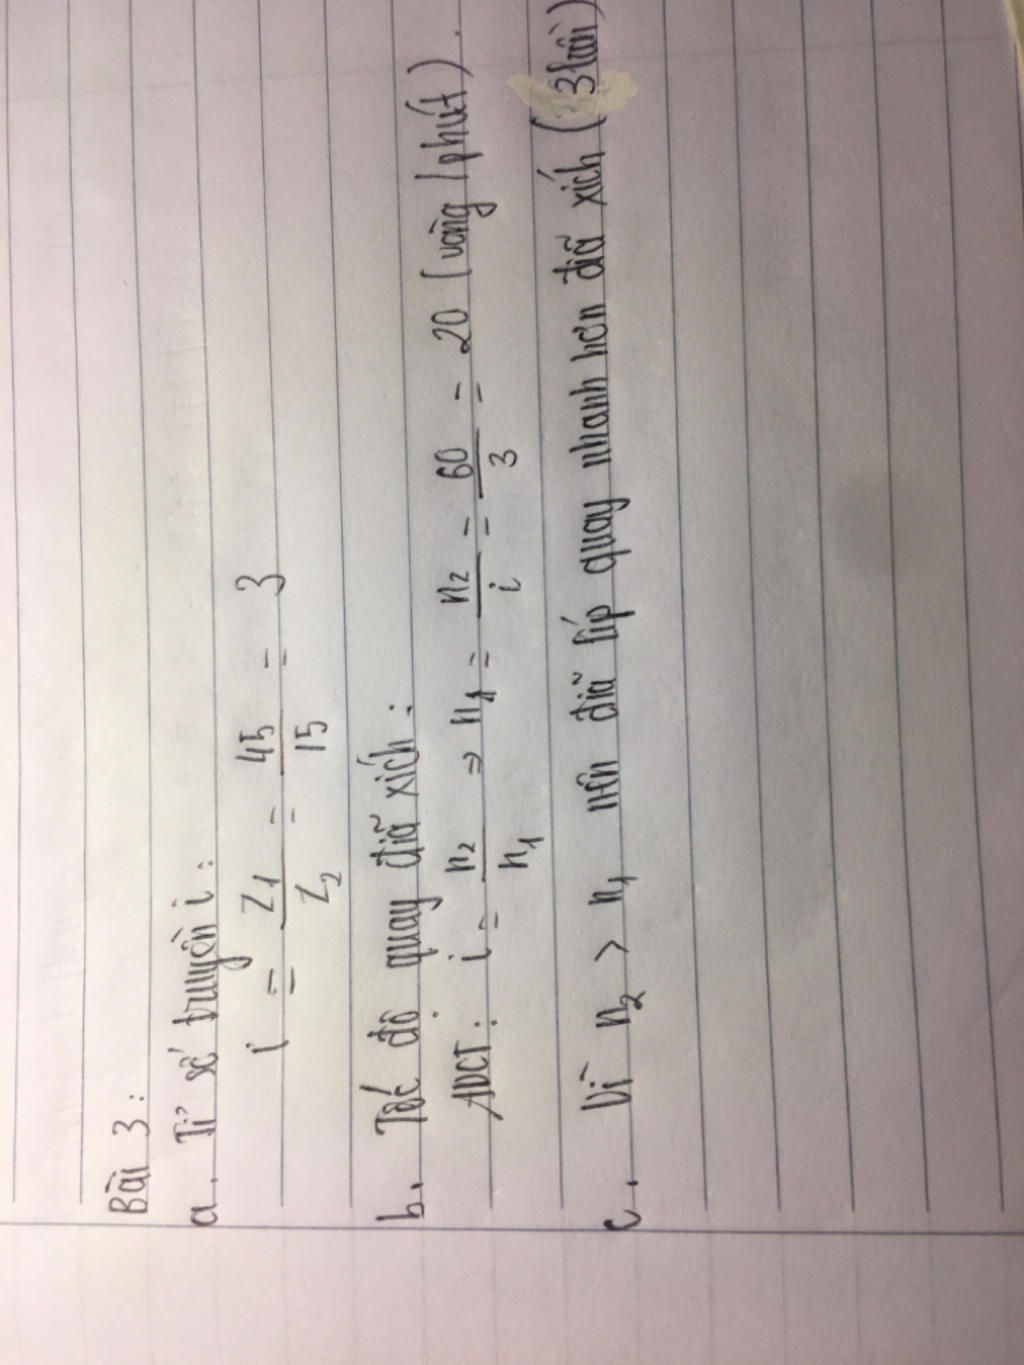 Bài 3:
a. Tỉ số truyền i:
i = Z1/Z2 = 45/15 = 3
b. Tốc độ quay đĩa xích:
ADCT: i = n2/n1 => n1 = n2/i = 60/3 = 20 (vòng/phút).
c. Vì n2 > n1 nên đĩa líp quay nhanh hơn đĩa xích (3 lần)